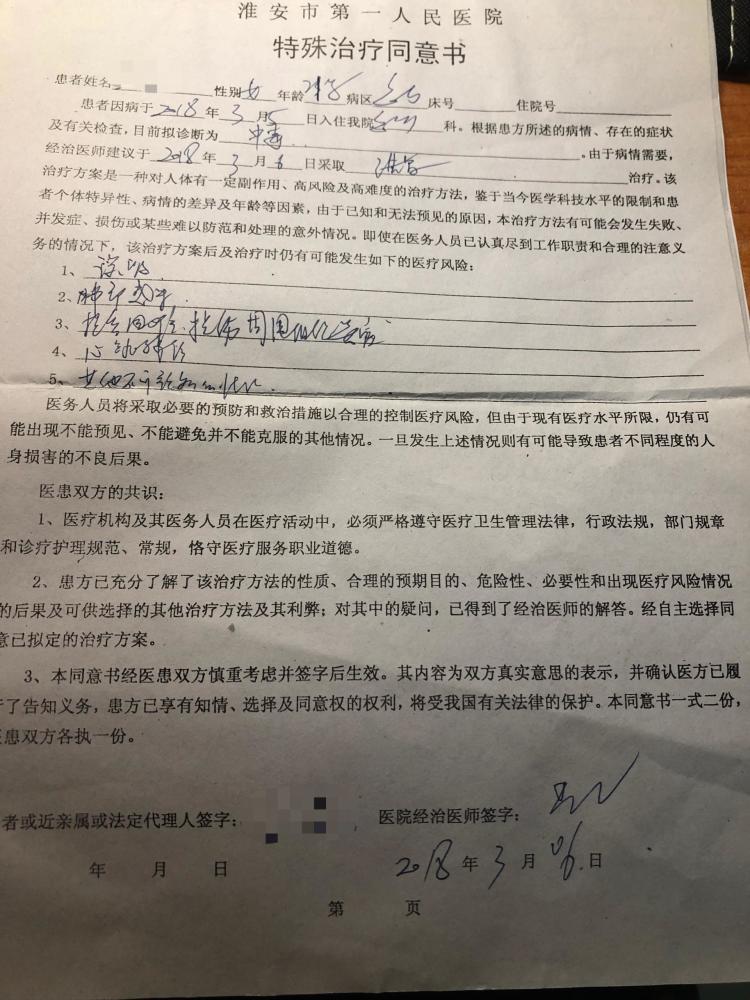 淮安市第一人民医院
特殊治疗同意书
患者姓名 性别女 年龄 病区 床号 住院号
患者因病于2018年3月5日入住我院 科。根据患方所述的病情、存在的症状
及有关检查,目前拟诊断为 中毒 。由于病情需要,
经治医师建议于2018年3月6日采取 洗胃 治疗。该
治疗方案是一种对人体有一定副作用、高风险及高难度的治疗方法,鉴于当今医学科技水平的限制和患
者个体特异性、病情的差异及年龄等因素,由于已知和无法预见的原因,本治疗方法有可能会发生失败、
并发症、损伤或某些难以防范和处理的意外情况。即使在医务人员已认真尽到工作职责和合理的注意义
务的情况下,该治疗方案后及治疗时仍有可能发生如下的医疗风险:
1、误吸
2、肺部感染
3、 损伤周围
4、心
5、其他不可预知的情况
医务人员将采取必要的预防和救治措施以合理的控制医疗风险,但由于现有医疗水平所限,仍有可
能出现不能预见、不能避免并不能克服的其他情况。一旦发生上述情况则有可能导致患者不同程度的人
身损害的不良后果。
医患双方的共识:
1、医疗机构及其医务人员在医疗活动中,必须严格遵守医疗卫生管理法律,行政法规,部门规章
和诊疗护理规范、常规,恪守医疗服务职业道德。
2、患方已充分了解了该治疗方法的性质、合理的预期目的、危险性、必要性和出现医疗风险情况
的后果及可供选择的其他治疗方法及其利弊;对其中的疑问,已得到了经治医师的解答。经自主选择同
意已拟定的治疗方案。
3、本同意书经医患双方慎重考虑并签字后生效。其内容为双方真实意思的表示,并确认医方已履
行了告知义务,患方已享有知情、选择及同意权的权利,将受我国有关法律的保护。本同意书一式二份,
医患双方各执一份。
者或近亲属或法定代理人签字: 医院经治医师签字:
年 月 日 2018年3月06日
第 页